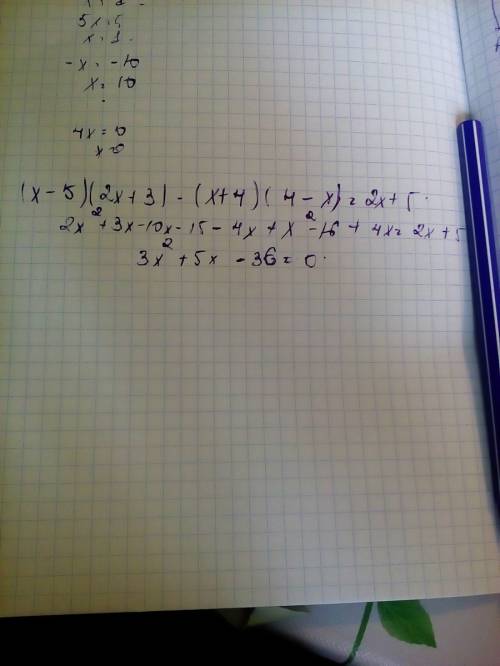 5x = 5
x = 1.
-x = -10
x = 10
4x = 0
x = 0
(x - 5)(2x + 3) - (x+4)(4 - x) = 2x + 5.
2x² + 3x - 10x - 15 - 4x + x² - 16 + 4x = 2x + 5
3x² + 5x - 36 = 0.